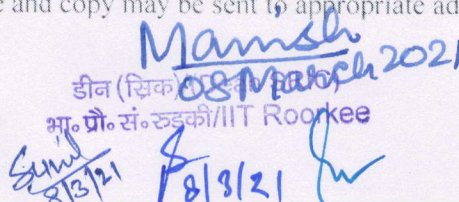 e and copy may be sent to appropriate ad
Manish
08 March 2021
डीन (स्रिक)
भा॰ प्रौ॰ सं॰ रुड़की/IIT Roorkee
Sunil
8/3/21
8/3/21